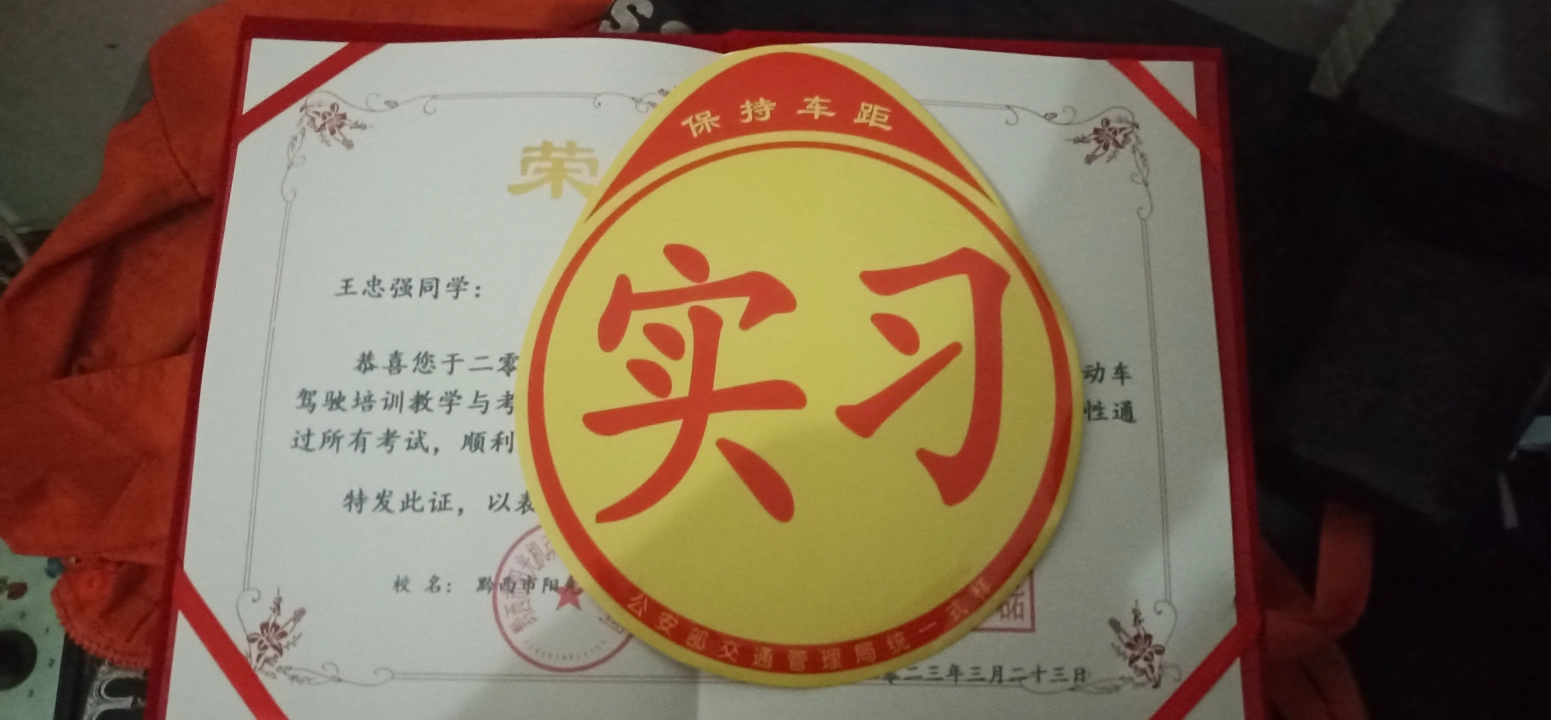 保持车距
实习
公安部交通管理局统一式样
荣
王忠强同学：
恭喜您于二零 动车
驾驶培训教学与考 性通
过所有考试，顺利
特发此证，以表
校 名： 黔西市阳
零二三年三月二十三日